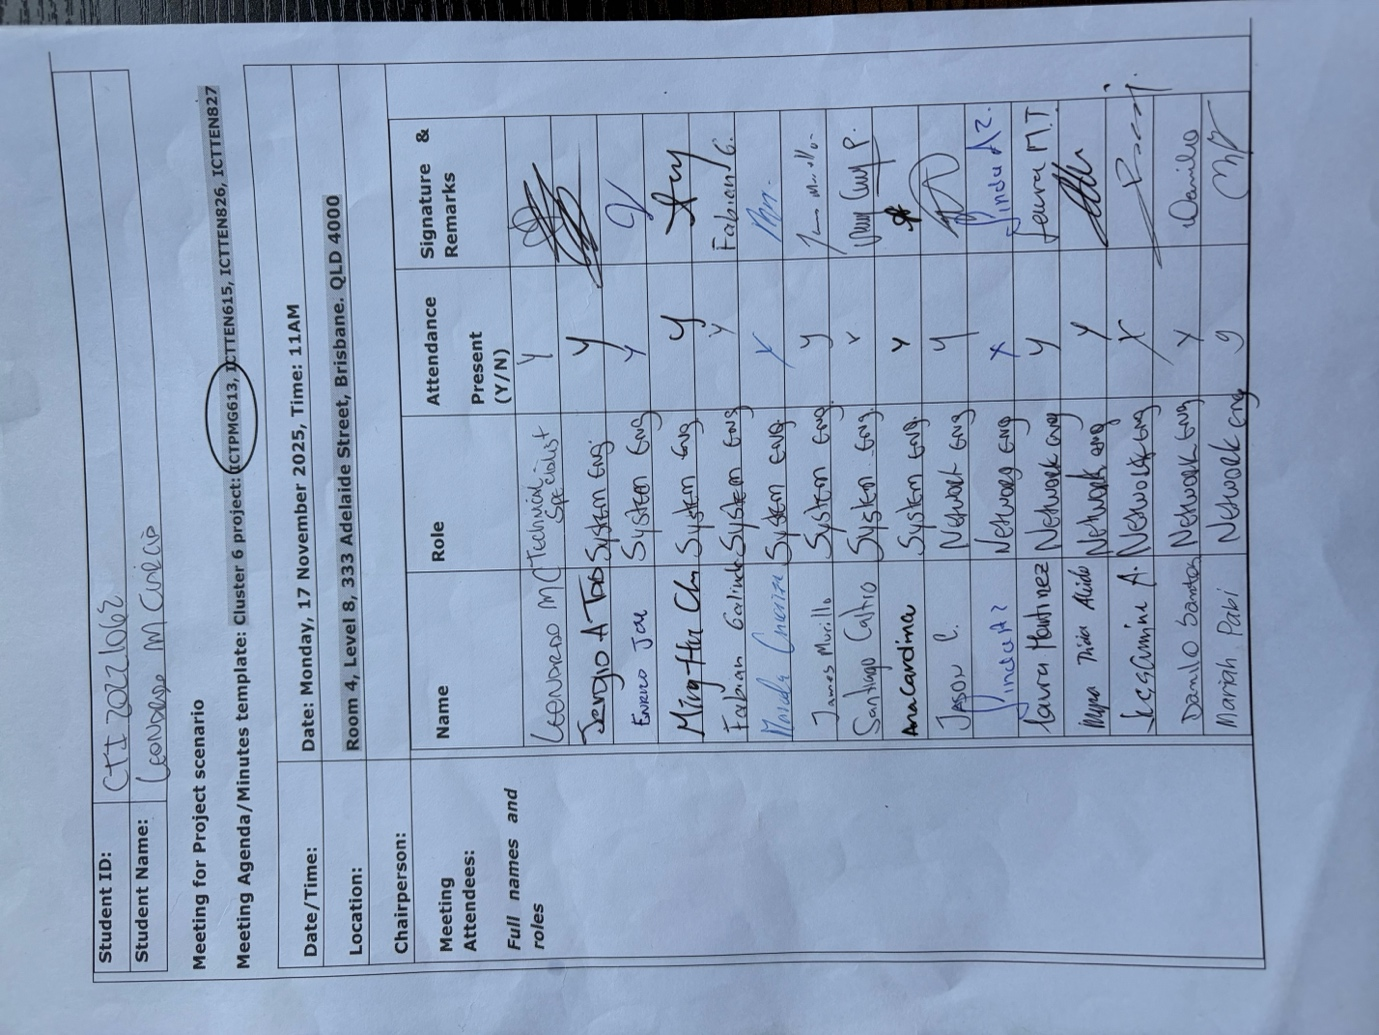 Student ID: CTI 2022 1062
Student Name: Leonardo M Curcio
Meeting for Project scenario
Meeting Agenda/Minutes template: Cluster 6 project: ICTPMG613, ICTTEN615, ICTTEN826, ICTTEN827
Date/Time: Date: Monday, 17 November 2025, Time: 11AM
Location: Room 4, Level 8, 333 Adelaide Street, Brisbane. QLD 4000
Chairperson:
Meeting Attendees:
Full names and roles
Name Role Attendance Present (Y/N) Signature & Remarks
Leonardo MC Technical Specialist Y
Sergio A System Eng. Y
Enrico System Eng Y
System Eng. Y
Fabian Galindo System Eng Y Fabian G.
System Eng. Y
James Murillo System Eng. Y
Santiago Castro System Eng. Y
Ana Carolina System Eng. Y
Jason C. Network Eng Y
Network Eng Y
Laura Martinez Network eng Y Laura M.T
Network eng Y
Jessamine A. Network Eng Y
Danilo Santos Network Eng Y Danilo
Mariah Network eng Y